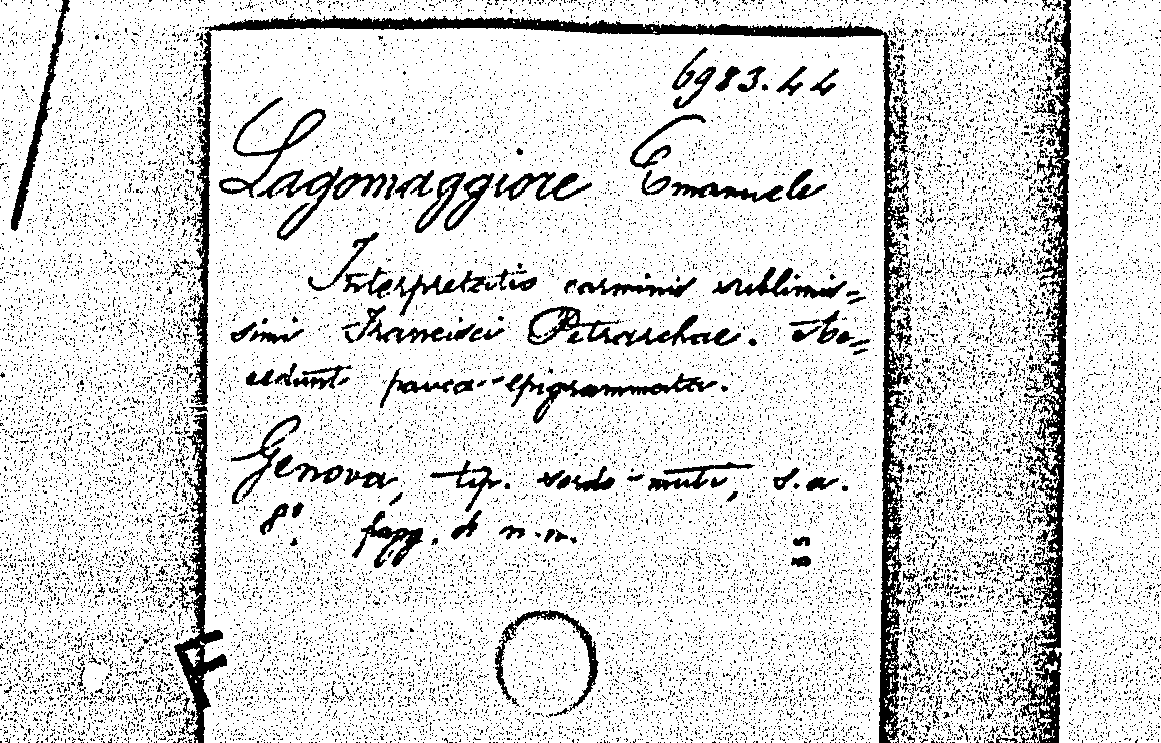 6983.44
Lagomaggiore Emanuele
Interpretatio carminis sublimis=
simi Francisci Petrarchae. Ac=
cedunt pauca epigrammata.
Genova, tip. sordo-muti, s.a.
8º. fapg. d n.n.
F